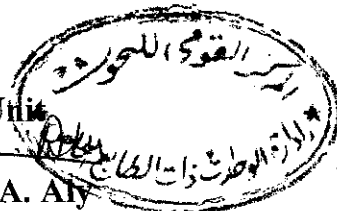 المركز القومى للبحوث
Unit
إدارة الوحدات ذات الطابع
A. Aly